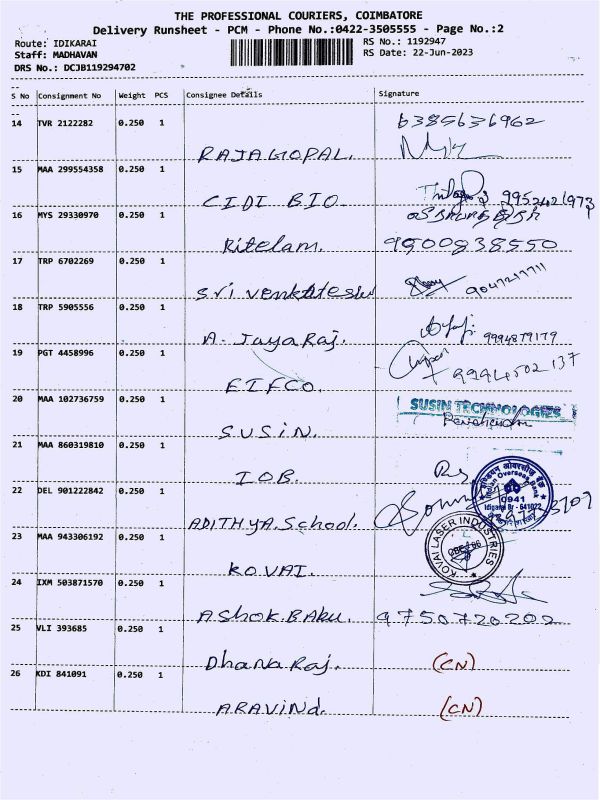 THE PROFESSIONAL COURIERS, COIMBATORE
Delivery Runsheet - PCM - Phone No.:0422-3505555 - Page No.:2
Route: IDIKARAI
RS No.: 1192947
Staff: MADHAVAN
RS Date: 22-Jun-2023
DRS No.: DCJB119294702
S No Consignment No Weight PCS Consignee Details Signature
14 TVR 2122282 0.250 1
RAJAGOPAL.
15 MAA 299554358 0.250 1
CIDI BIO
16 MYS 29330970 0.250 1
Ritelam. 9500838550
17 TRP 6702269 0.250 1
Sri Venkatesh
18 TRP 5905556 0.250 1
A. JayaRaj. 9994879179
19 PGT 4458996 0.250 1
EIFCO.
20 MAA 102736759 0.250 1
SUSIN TECHNOLOGIES
SUSIN.
21 MAA 860319810 0.250 1
IOB.
Indian Overseas Bank
0941
Idigarai Br - 641022
22 DEL 901222842 0.250 1
ADITHYA School.
23 MAA 943306192 0.250 1
KOVAI LASER INDUSTRIES
KOVAI.
24 IXM 503871570 0.250 1
AShok BAbu. 9750720202
25 VLI 393685 0.250 1
DhanaRaj. (CN)
26 KDI 841091 0.250 1
ARAVINd. (CN)